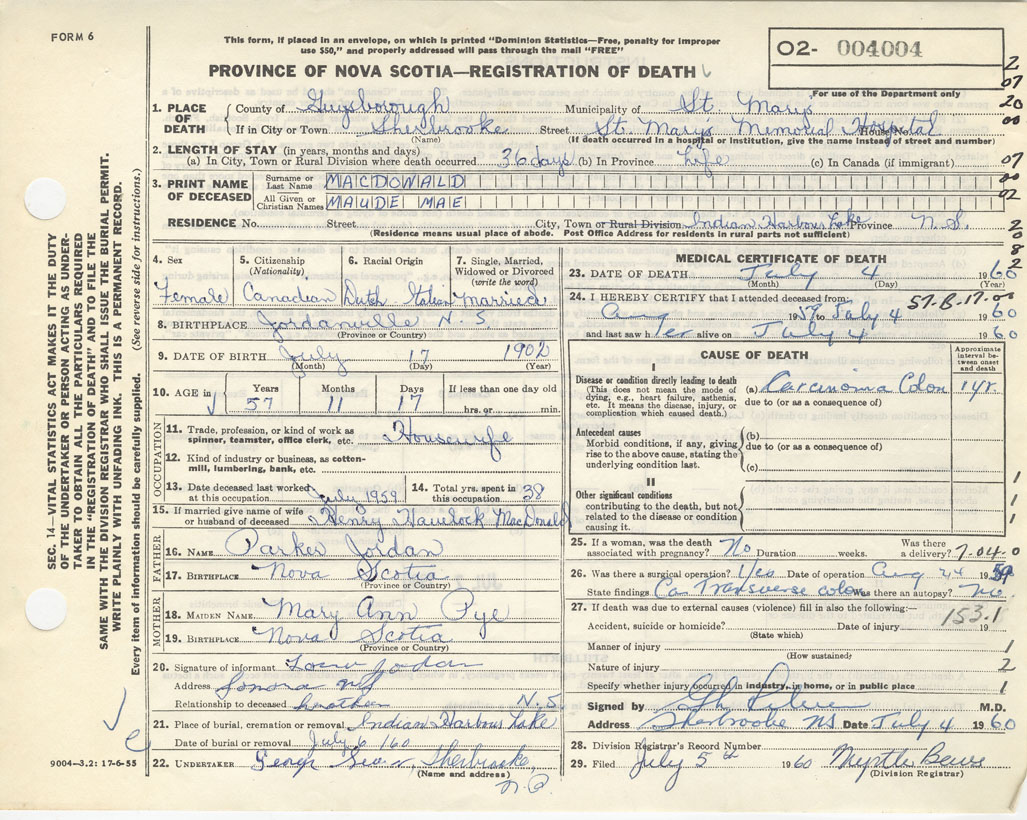 FORM 6
This form, if placed in an envelope, on which is printed "Dominion Statistics—Free, penalty for improper
use $50," and properly addressed will pass through the mail "FREE"
02- 004004
For use of the Department only
PROVINCE OF NOVA SCOTIA—REGISTRATION OF DEATH
1. PLACE OF DEATH { County of Guysborough Municipality of St. Mary's
If in City or Town Sherbrooke Street St. Mary's Memorial Hospital House No.
(Name) (If death occurred in a hospital or institution, give the name instead of street and number)
2. LENGTH OF STAY (in years, months and days)
(a) In City, Town or Rural Division where death occurred 36 days (b) In Province Life (c) In Canada (if immigrant)
3. PRINT NAME OF DECEASED { Surname or Last Name MACDONALD
All Given or Christian Names MAUDE MAE
RESIDENCE No. Street City, Town or Rural Division Indian Harbour Lake Province N.S.
(Residence means usual place of abode. Post Office Address for residents in rural parts not sufficient)
4. Sex Female
5. Citizenship (Nationality) Canadian
6. Racial Origin Dutch
7. Single, Married, Widowed or Divorced (write the word) Married
8. BIRTHPLACE Jordanville N.S
(Province or Country)
9. DATE OF BIRTH July 17 1902
(Month) (Day) (Year)
10. AGE in Years 57 Months 11 Days 17 If less than one day old hrs. or min.
OCCUPATION
11. Trade, profession, or kind of work as spinner, teamster, office clerk, etc. Housewife
12. Kind of industry or business, as cotton-mill, lumbering, bank, etc.
13. Date deceased last worked at this occupation July 1959
14. Total yrs. spent in this occupation 38
15. If married give name of wife or husband of deceased Henry Havelock MacDonald
FATHER
16. NAME Parker Jordan
17. BIRTHPLACE Nova Scotia
(Province or Country)
MOTHER
18. MAIDEN NAME Mary Ann Pye
19. BIRTHPLACE Nova Scotia
(Province or Country)
20. Signature of informant Jordan
Address Sonora NS
Relationship to deceased brother N.S
21. Place of burial, cremation or removal Indian Harbour Lake
Date of burial or removal July 6/60
22. UNDERTAKER George Sherbrooke,
(Name and address)
MEDICAL CERTIFICATE OF DEATH
23. DATE OF DEATH July 4 1960
(Month) (Day) (Year)
24. I HEREBY CERTIFY that I attended deceased from:
57-B-17-00
Aug 1959 to July 4 1960
and last saw her alive on July 4 1960
CAUSE OF DEATH
Approximate interval between onset and death
I
Disease or condition directly leading to death (This does not mean the mode of dying, e.g., heart failure, asthenia, etc. It means the disease, injury, or complication which caused death.)
(a) Carcinoma Colon 1 yr.
due to (or as a consequence of)
Antecedent causes
Morbid conditions, if any, giving rise to the above cause, stating the underlying condition last.
(b)
due to (or as a consequence of)
(c)
II
Other significant conditions contributing to the death, but not related to the disease or condition causing it.
25. If a woman, was the death associated with pregnancy? No Duration weeks. Was there a delivery?
7-04-0
26. Was there a surgical operation? Yes Date of operation Aug 24 1959
State findings Ca Transverse colon Was there an autopsy? No.
27. If death was due to external causes (violence) fill in also the following:—
153.1
Accident, suicide or homicide? Date of injury 19
(State which)
Manner of injury
(How sustained)
Nature of injury
Specify whether injury occurred in industry, in home, or in public place
Signed by M.D.
Address Sherbrooke NS Date July 4 1960
28. Division Registrar's Record Number
29. Filed July 5th 1960 Myrtle
(Division Registrar)
2
07
20
00
07
00
02
2
8
2
1
1
1
1
2
1
SEC. 14—VITAL STATISTICS ACT MAKES IT THE DUTY
OF THE UNDERTAKER OR PERSON ACTING AS UNDER-
TAKER TO OBTAIN ALL THE PARTICULARS REQUIRED
IN THE "REGISTRATION OF DEATH" AND TO FILE THE
SAME WITH THE DIVISION REGISTRAR WHO SHALL ISSUE THE BURIAL PERMIT.
WRITE PLAINLY WITH UNFADING INK. THIS IS A PERMANENT RECORD.
Every item of information should be carefully supplied. (See reverse side for instructions.)
9004—3.2: 17-6-55